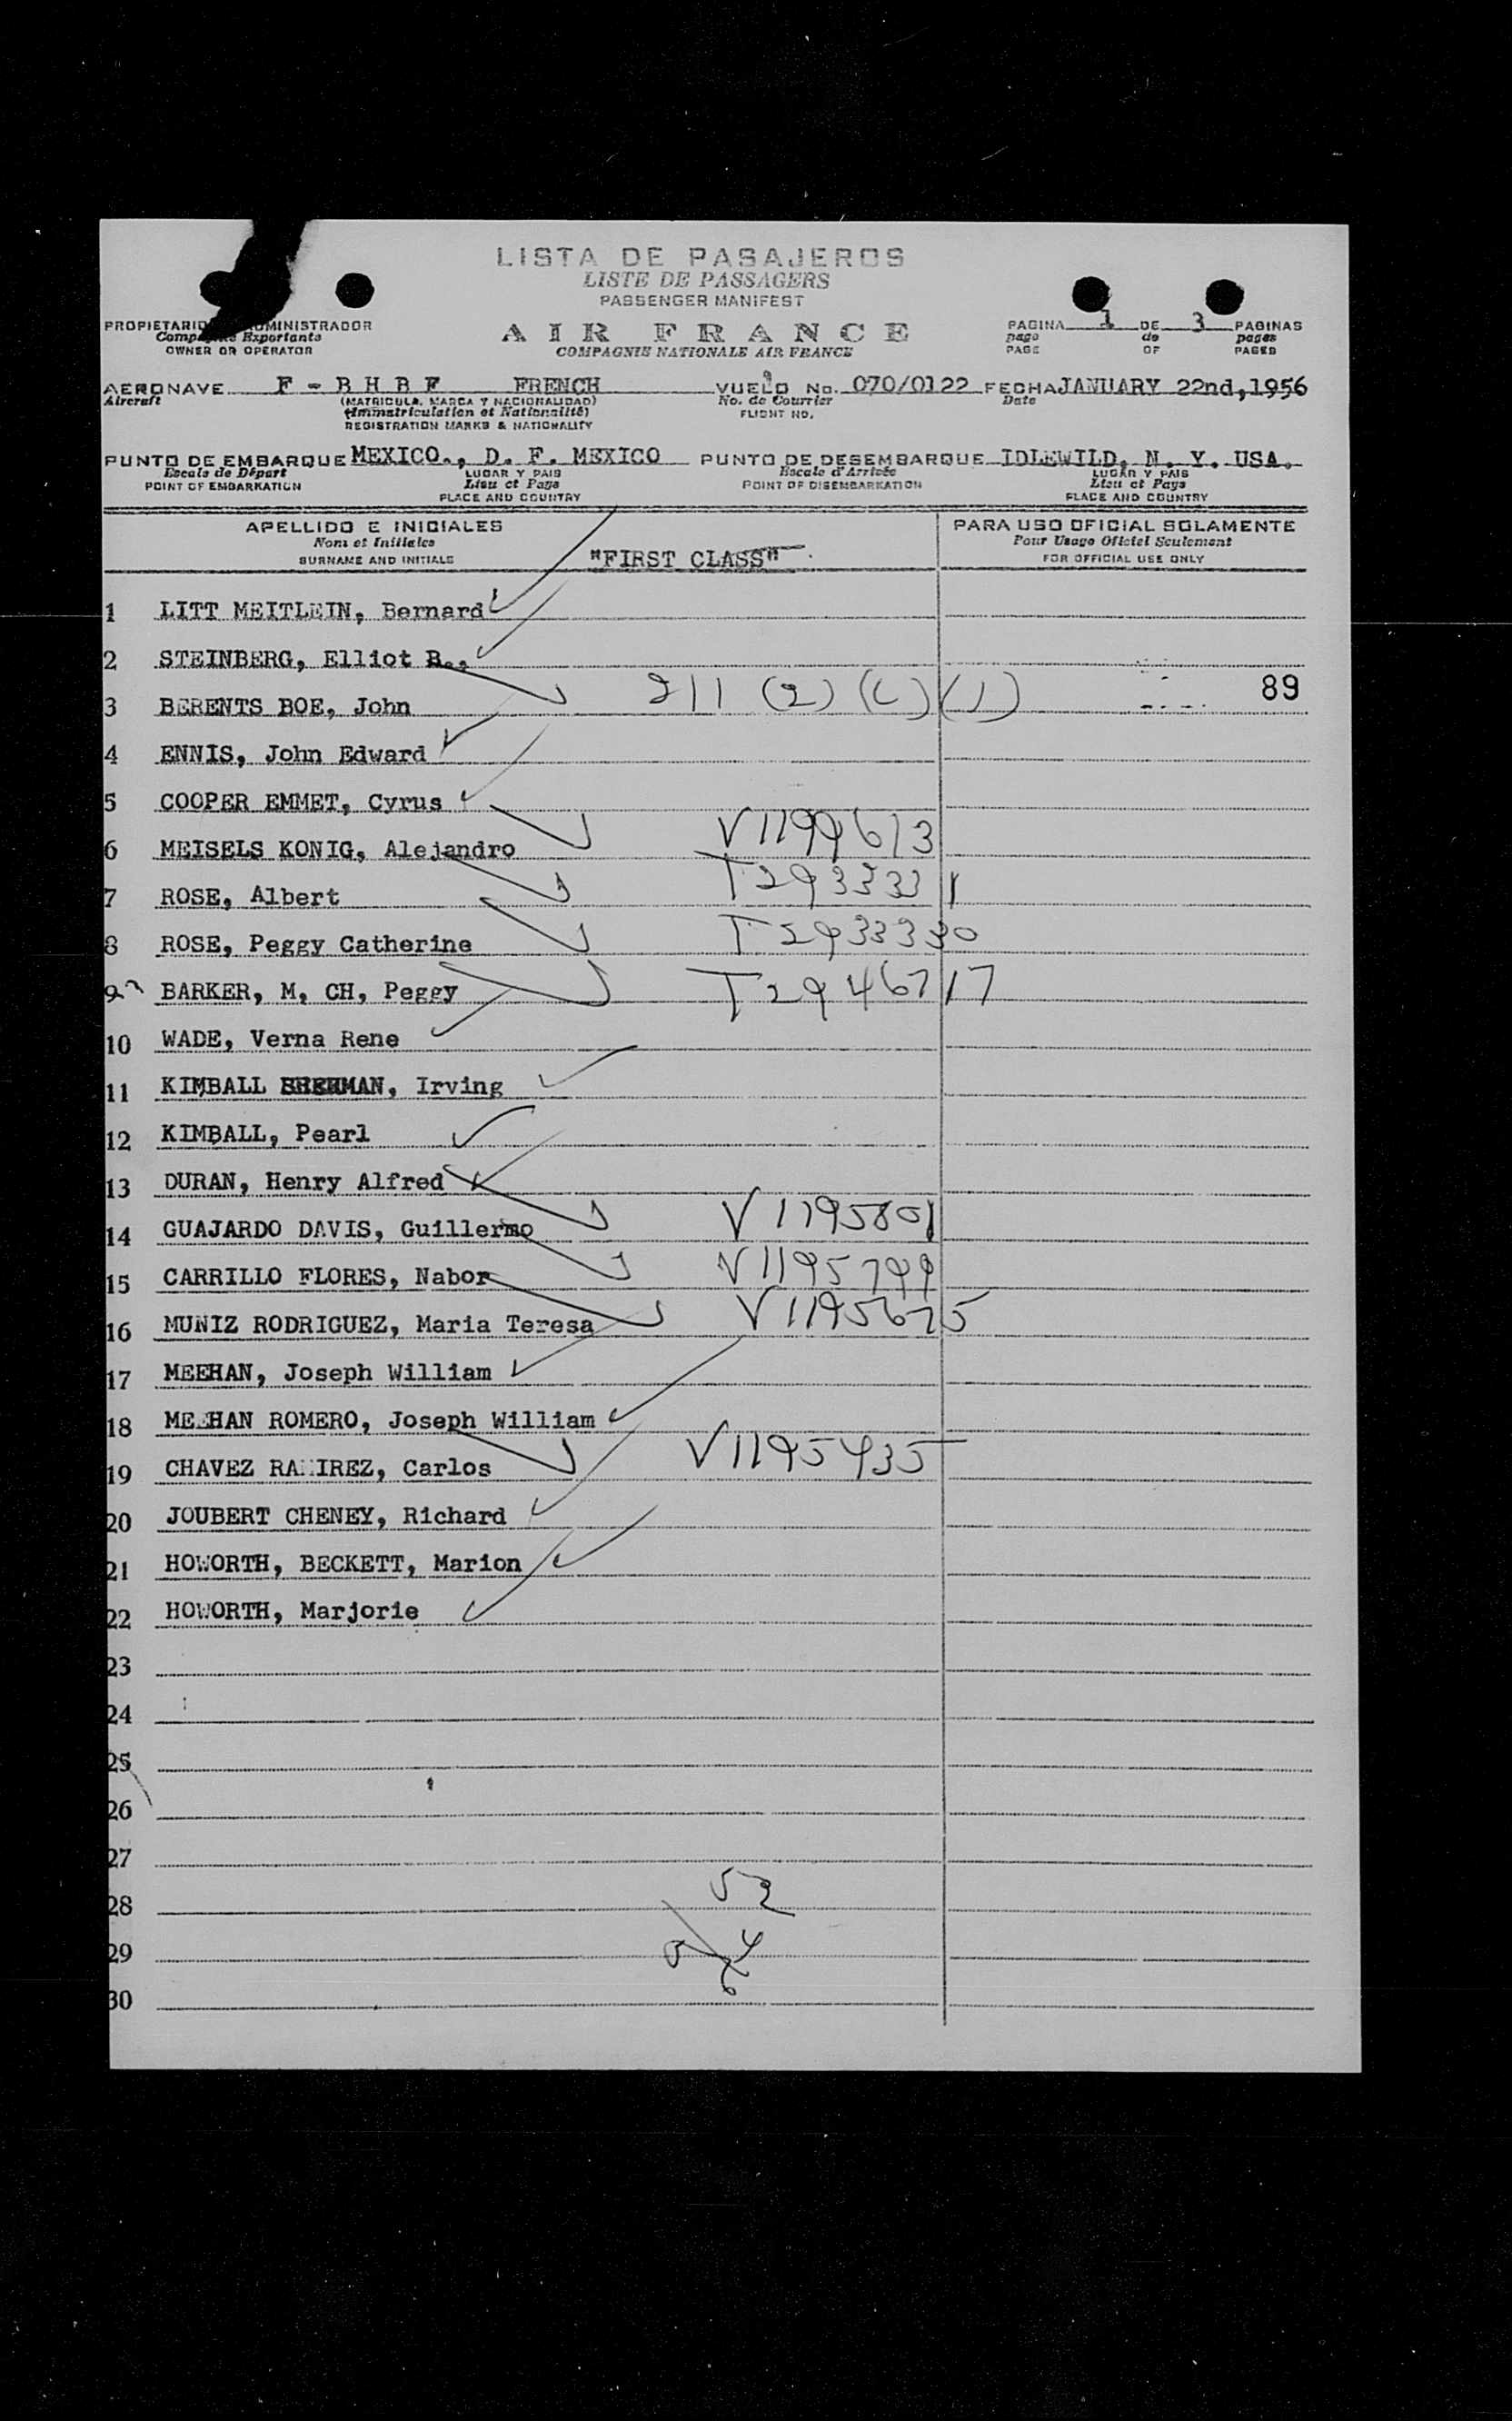 LISTA DE PASAJEROS
LISTE DE PASSAGERS
PASSENGER MANIFEST
PROPIETARIO ADMINISTRADOR
Exportante
OWNER OR OPERATOR
AIR FRANCE
COMPAGNIE NATIONALE AIR FRANCE
PAGINA 1 DE 3 PAGINAS
page de pages
PAGE OF PAGES
AERONAVE F - B H B F FRENCH VUELO No. 070/0122 FECHA JANUARY 22nd, 1956
Aircraft (MATRICULA, MARCA Y NACIONALIDAD) No. de Courrier Date
(Immatriculation et Nationalité) FLIGHT NO.
REGISTRATION MARKS & NATIONALITY
PUNTO DE EMBARQUE MEXICO., D. F. MEXICO PUNTO DE DESEMBARQUE IDLEWILD, N. Y. USA.
Escale de Départ LUGAR Y PAIS Escale d'Arrivée LUGAR Y PAIS
POINT OF EMBARKATION Lieu et Pays POINT OF DISEMBARKATION Lieu et Pays
PLACE AND COUNTRY PLACE AND COUNTRY
APELLIDO E INICIALES PARA USO OFICIAL SOLAMENTE
Nom et Initiales Pour Usage Officiel Seulement
SURNAME AND INITIALS "FIRST CLASS" FOR OFFICIAL USE ONLY
1 LITT MEITLEIN, Bernard
2 STEINBERG, Elliot B.,
3 BERENTS BOE, John 211 (2) (C) (1) 89
4 ENNIS, John Edward
5 COOPER EMMET, Cyrus
6 MEISELS KONIG, Alejandro V1194613
7 ROSE, Albert T2933331
8 ROSE, Peggy Catherine T2933330
9 BARKER, M, CH, Peggy T2946717
10 WADE, Verna Rene
11 KIMBALL SHERMAN, Irving
12 KIMBALL, Pearl
13 DURAN, Henry Alfred
14 GUAJARDO DAVIS, Guillermo V1195801
15 CARRILLO FLORES, Nabor V1195799
16 MUNIZ RODRIGUEZ, Maria Teresa V1195675
17 MEEHAN, Joseph William
18 MEEHAN ROMERO, Joseph William
19 CHAVEZ RAMIREZ, Carlos V1195935
20 JOUBERT CHENEY, Richard
21 HOWORTH, BECKETT, Marion
22 HOWORTH, Marjorie
23
24
25
26
27
28 52
29
30